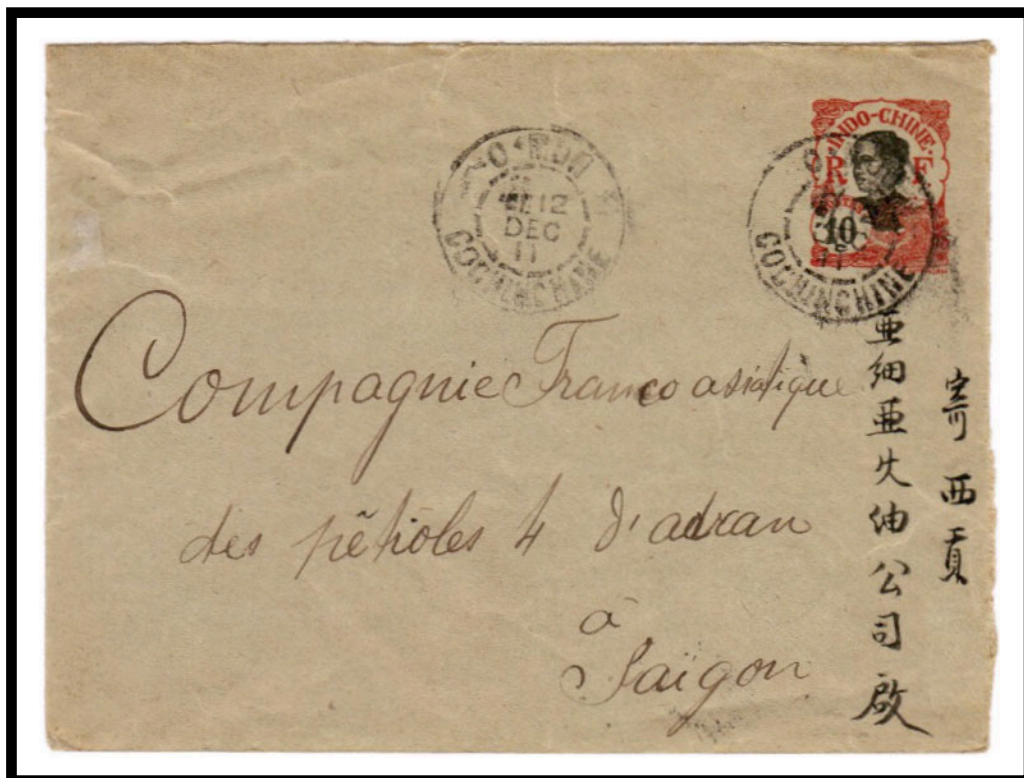 INDO-CHINE
R F
10
12
DEC
11
COCHINCHINE
COCHINCHINE
Compagnie Franco asiatique
des pêtroles 4 d'adran
à
Saïgon
寄西貢
亜細亜火油公司啟